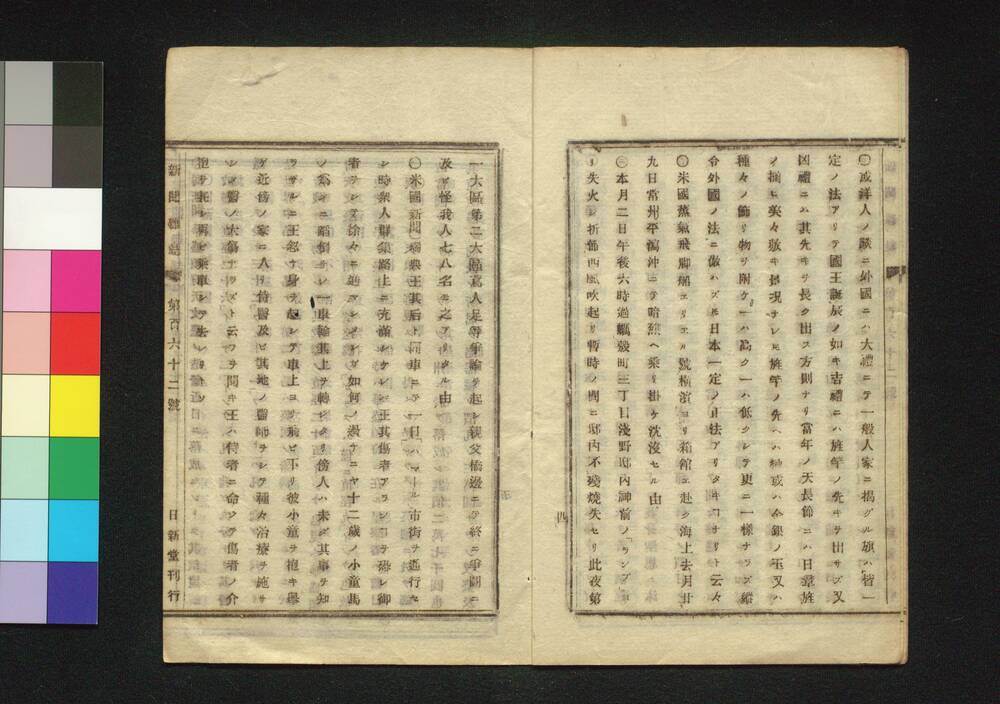 ○或洋人ノ談ニ外國ニハ大禮ニテ一般人家ニ揭グル旗ハ皆一
定ノ法アリテ國王誕辰ノ如キ吉禮ニハ旌竿ノ先キヲ出サズ又
凶禮ニハ其先キヲ長ク出ス方則ナリ當年ノ天長節ニハ日章旌
ノ揃ヒ美々敷キ景況ナレ𪜈旌竿ノ先ヘハ紳或ハ金銀ノ玉又ハ
種々ノ飾リ物ヲ附ケ一ハ高ク一ハ低クシテ更ニ一樣ナラズ縱
令外國ノ法ニ倣ハズ𪜈日本一定ノ自法アリタキヿナリト云々
○米國蒸氣飛脚船エリエル號橫濵ヨリ箱館エ赴ク海上去月廿
九日常州平潟沖ニテ暗焦ヘ乘リ掛ケ沈沒セル由
○本月二日午後六時過蠣殼町三丁目淺野邸內神前ノランプヨ
リ失火シ折節西風吹起リ暫時ノ間ニ邸內不殘燒失セリ此夜第
四
一大區第二大區寫人足等爭論ヲ起シ親父橋邊ニテ終ニ爭鬪ニ
及ヒ怪我人七八名コレアリタル由
○米國新聞瑞典王其后ト同車ニテ一日ハマール市街ヲ通行セ
シ時衆人群集路上ニ充滿シケレバ王其傷者アランヿヲ恐レ御
者ヲシテ徐々ニ進マシメシガ如何ノ過チニヤ十二歲ノ小童馬
ノ爲メニ蹈倒サレ一車輪其上ヲ轉ジタリ傍人ハ未ダ其事ヲ知
ラザルニ王忽チ身ヲ起シテ車上ヨリ飛ビ下リ彼小童ヲ抱キ擧
ゲ近傍ノ家ニ入リ侍醫及ビ其地ノ醫師ヲシテ種々治療ヲ施サ
シメ醫ノ大傷ナラズト云フヲ聞キ王ハ侍者ニ命ジテ傷者ノ介
抱ヲ托シ再ビ乘車シテ去レリトゾ
新聞雜誌 第百六十二號 日新堂刊行